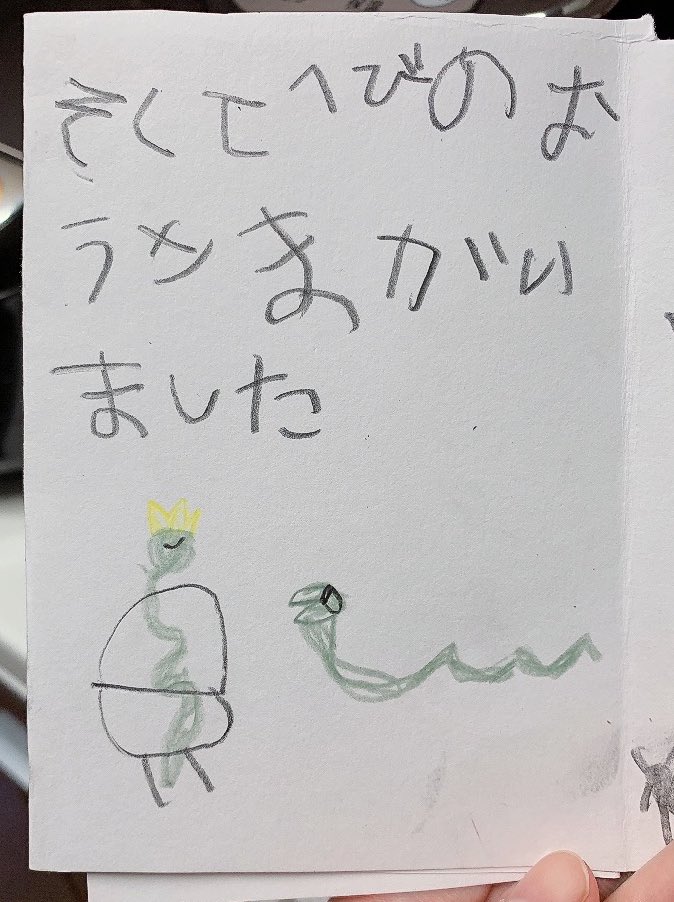 そしてへびのお
うさまがい
ました